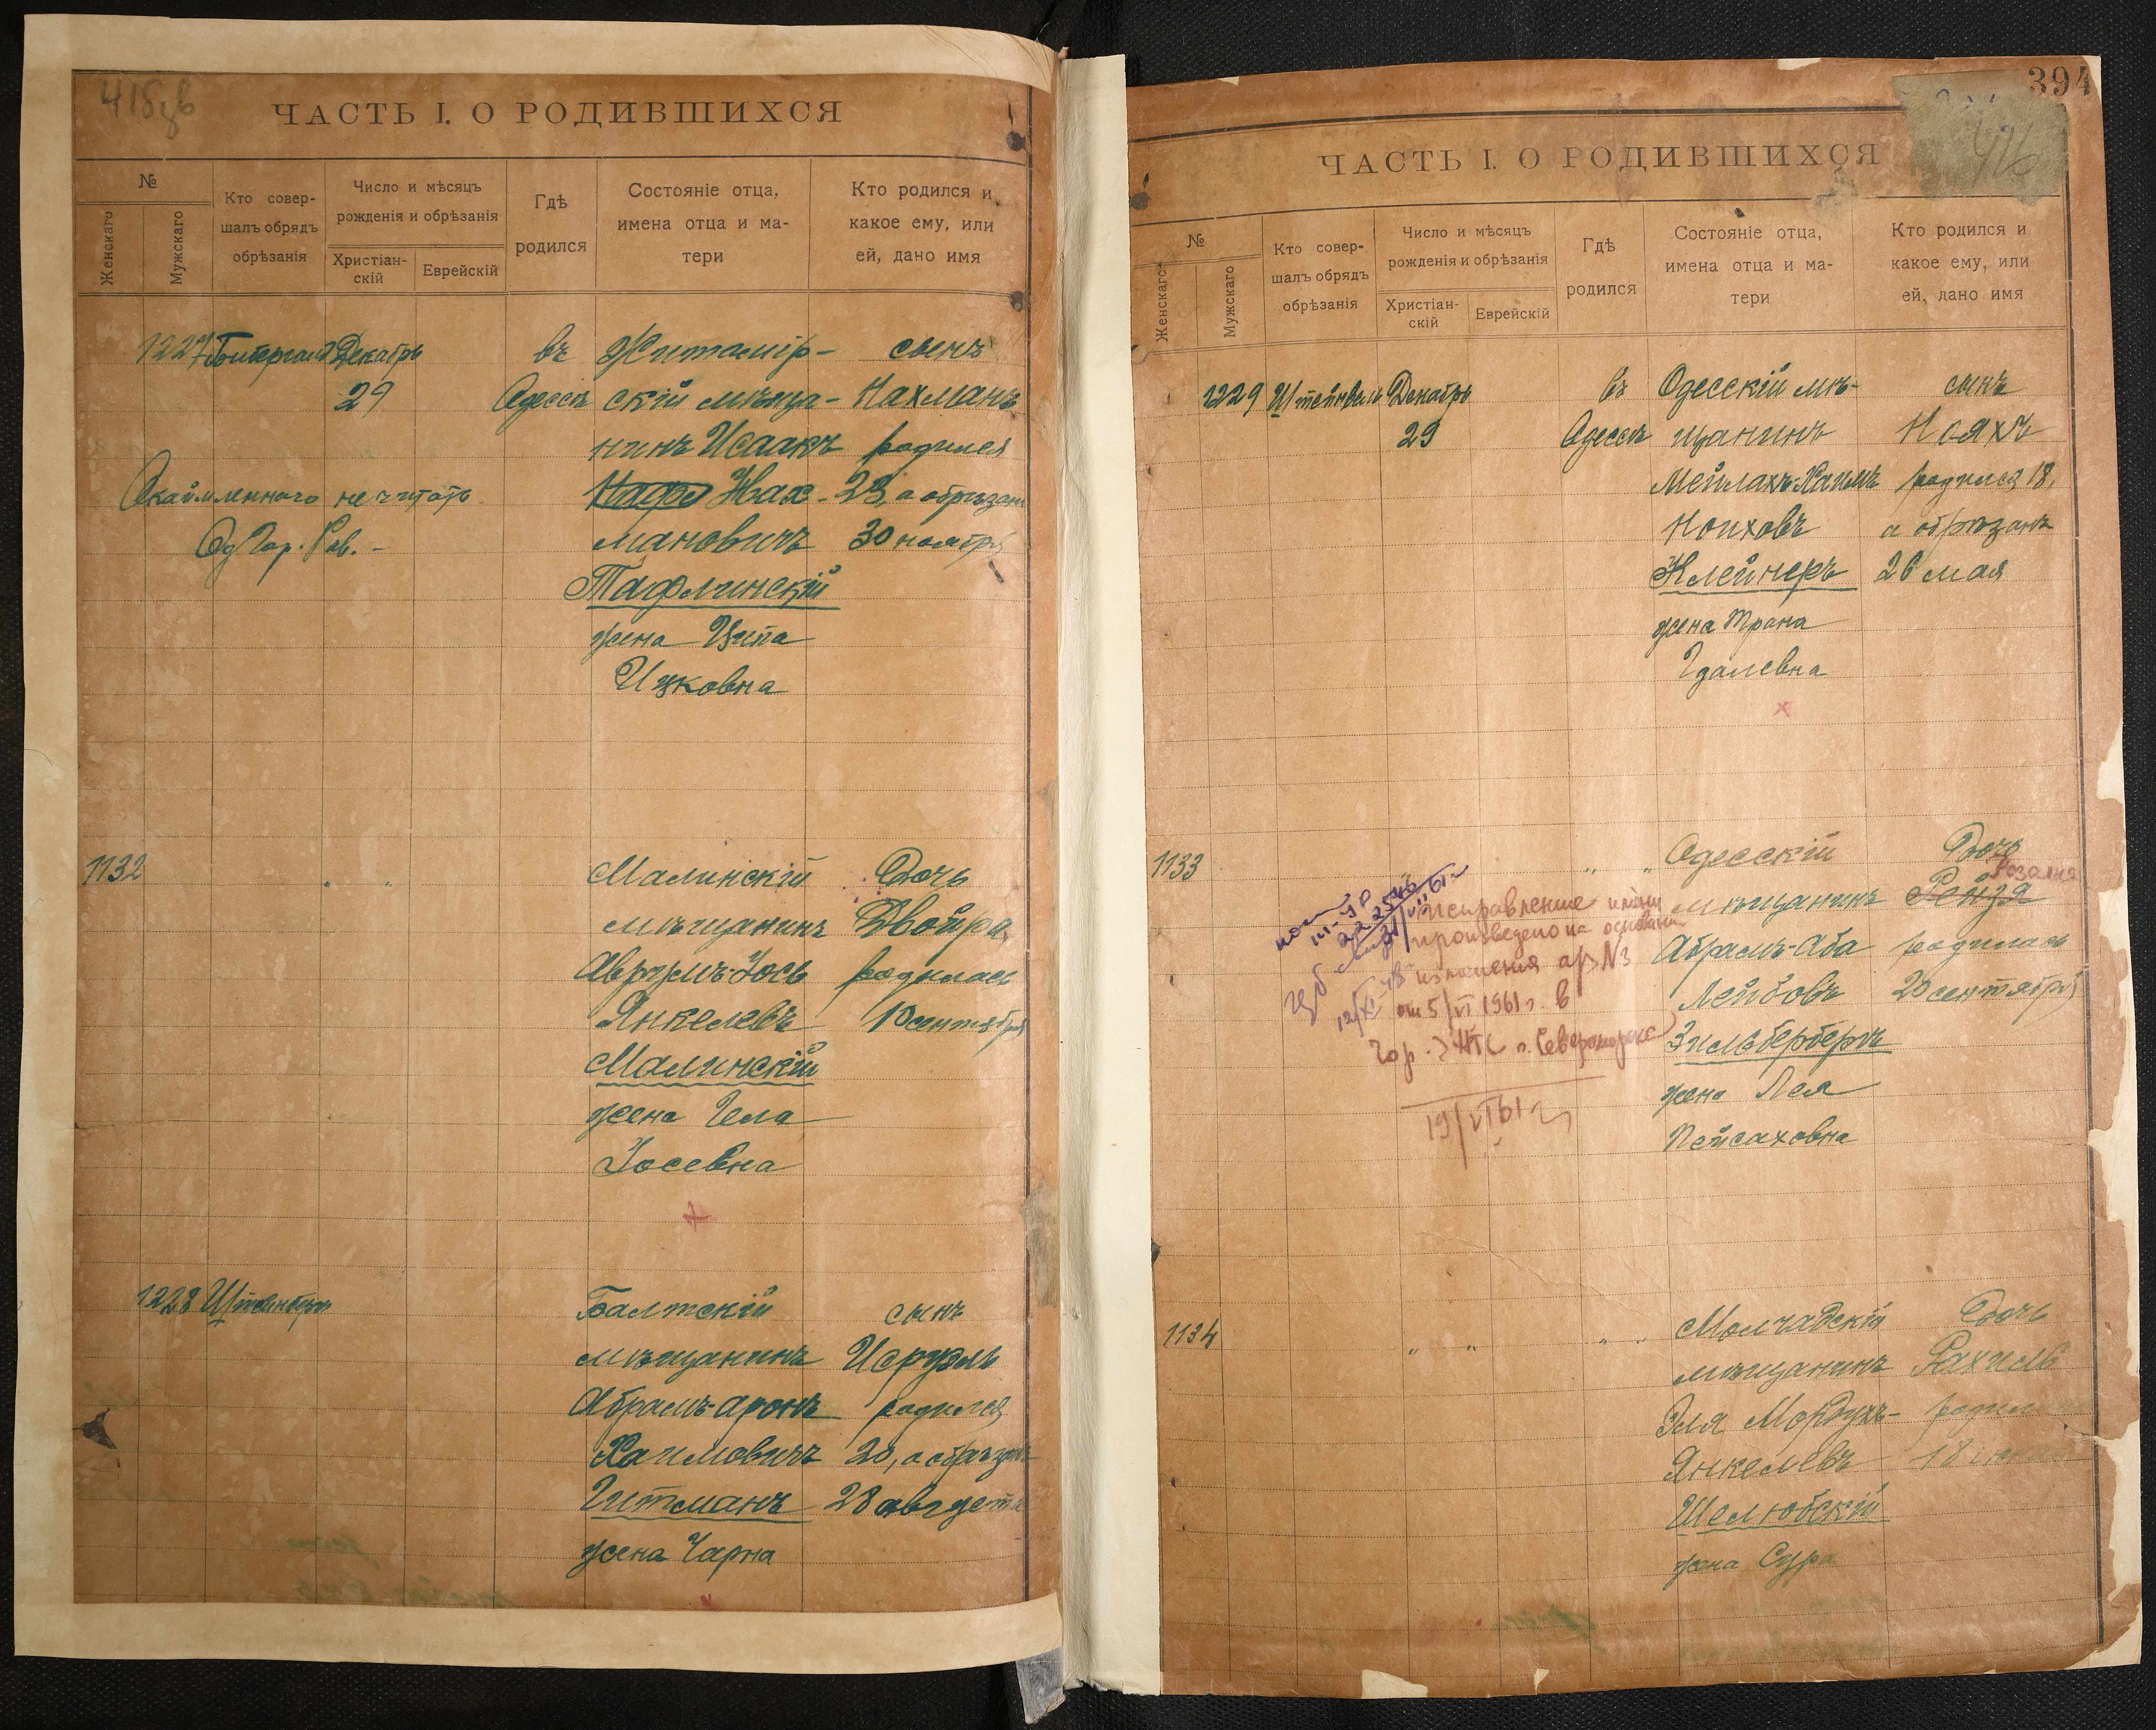 ЧАСТЬ I. О РОДИВШИХСЯ
№
Женскаго
Мужскаго
Кто совер-
шалъ обрядъ
обрѣзанія
Число и мѣсяцъ
рожденія и обрѣзанія
Христіан-
скій
Еврейскій
Гдѣ
родился
Состояніе отца,
имена отца и ма-
тери
Кто родился и
какое ему, или
ей, дано имя
1227 Декабрь въ Житомір- сынъ
29 Одессѣ скій мѣща- Нахманъ
нинъ Исаакъ родился
Нах- 23, а обрѣзанъ
мановичъ 30 ноября
Тафлинскій
жена Ципа
Ицковна
Окаймленнаго не читать
Од. Гор. Рав.
1132 " " Малинскій Дочь
мѣщанинъ Двойра
Аврумъ-Іось родилась
Янкелевъ 10 сентября
Малинскій
жена Гела
Іосевна
1228 Штейнбергъ Балтскій сынъ
мѣщанинъ Исруэль
Абрамъ-Аронъ родился
Хаимовичъ 20, а обрѣзанъ
Гитманъ 28 августа
жена Чарна
394
416
ЧАСТЬ I. О РОДИВШИХСЯ
№
Женскаго
Мужскаго
Кто совер-
шалъ обрядъ
обрѣзанія
Число и мѣсяцъ
рожденія и обрѣзанія
Христіан-
скій
Еврейскій
Гдѣ
родился
Состояніе отца,
имена отца и ма-
тери
Кто родился и
какое ему, или
ей, дано имя
1229 Декабрь въ Одесскій мѣ- сынъ
29 Одессѣ щанинъ Нояхъ
Мейлахъ-Хаимъ родился 18,
Ноиховъ а обрѣзанъ
Клейнеръ 26 мая
жена Трана
Гдалевна
1133 " " " Одесскій Дочь
Розалия
мѣщанинъ Рейзя
Абрамъ-Аба родилась
Лейбовъ 20 сентября
Зильбербергъ
жена Лея
Пейсаховна
Исправление имени
произведено на основании
изменения а/з №3
от 5/VI 1961 г. в
Гор. ЗАГС г. Североморска
19/VI 61 г.
1134 " " " " Молчадскій Дочь
мѣщанинъ Рахиль
Эля Мордухъ- родилась
Янкелевъ 18
Шелюбскій
жена Сура